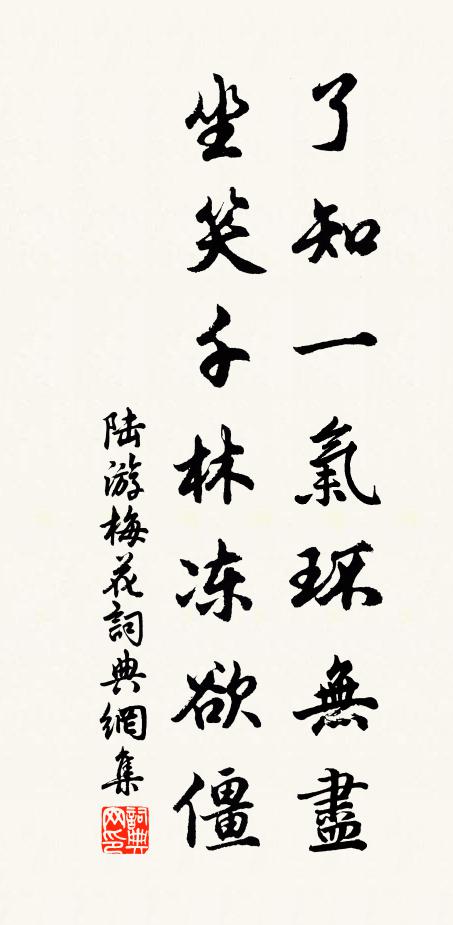 了知一氣环無盡
坐笑千林冻欲僵
陆游梅花詞典網集
詞典网印